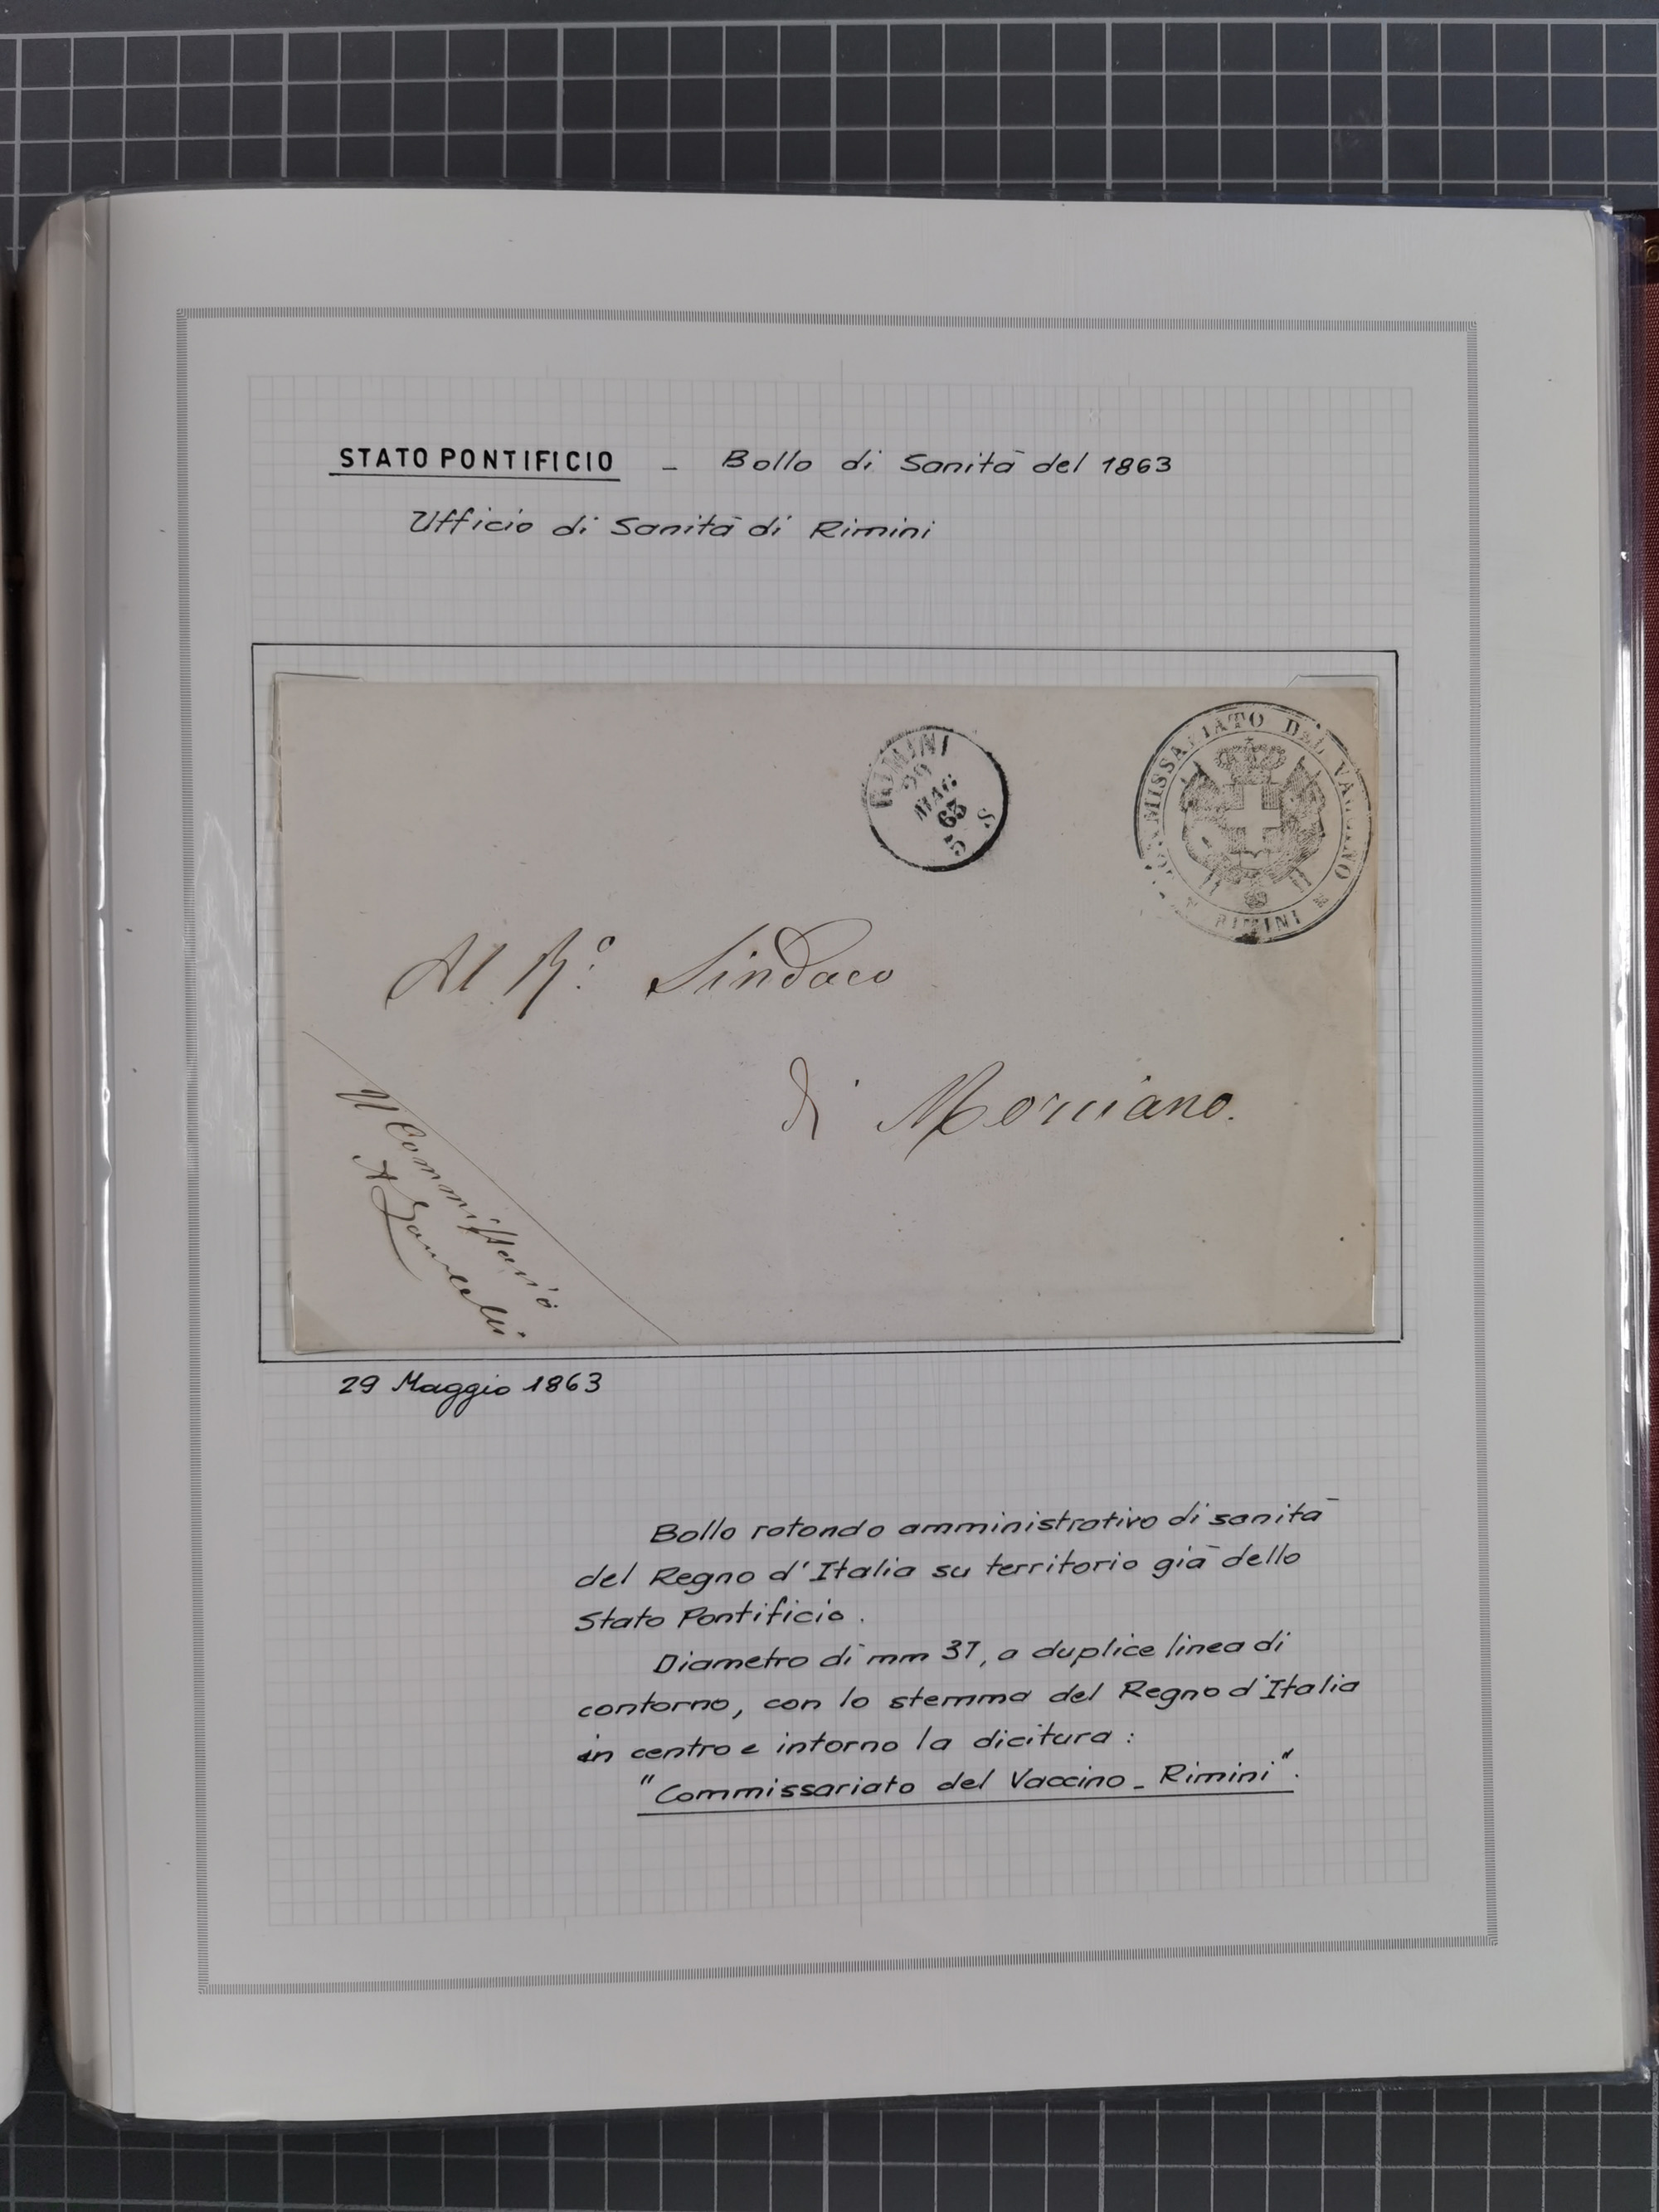 STATO PONTIFICIO - Bollo di Sanità del 1863
Ufficio di Sanità di Rimini
RIMINI
29
MAG
63
5 S
COMMISSARIATO DEL VACCINO
RIMINI
Al R.º Sindaco
di Morciano.
Il Commissario
29 Maggio 1863
Bollo rotondo amministrativo di sanità
del Regno d'Italia su territorio già dello
Stato Pontificio.
Diametro di mm 37, a duplice linea di
contorno, con lo stemma del Regno d'Italia
in centro e intorno la dicitura :
"Commissariato del Vaccino - Rimini".